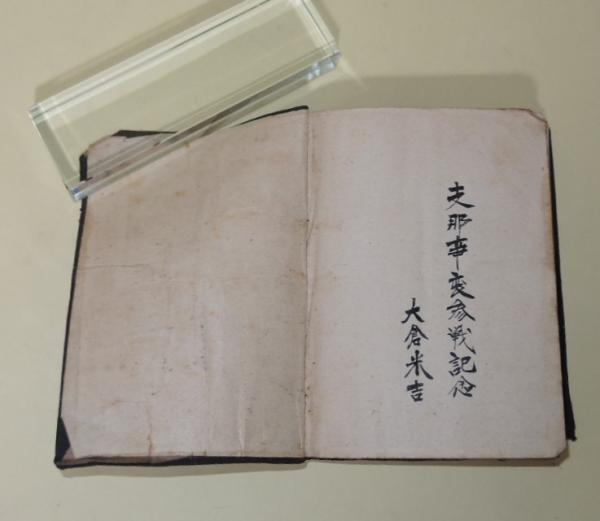 支那事変参戦記念
大倉米吉